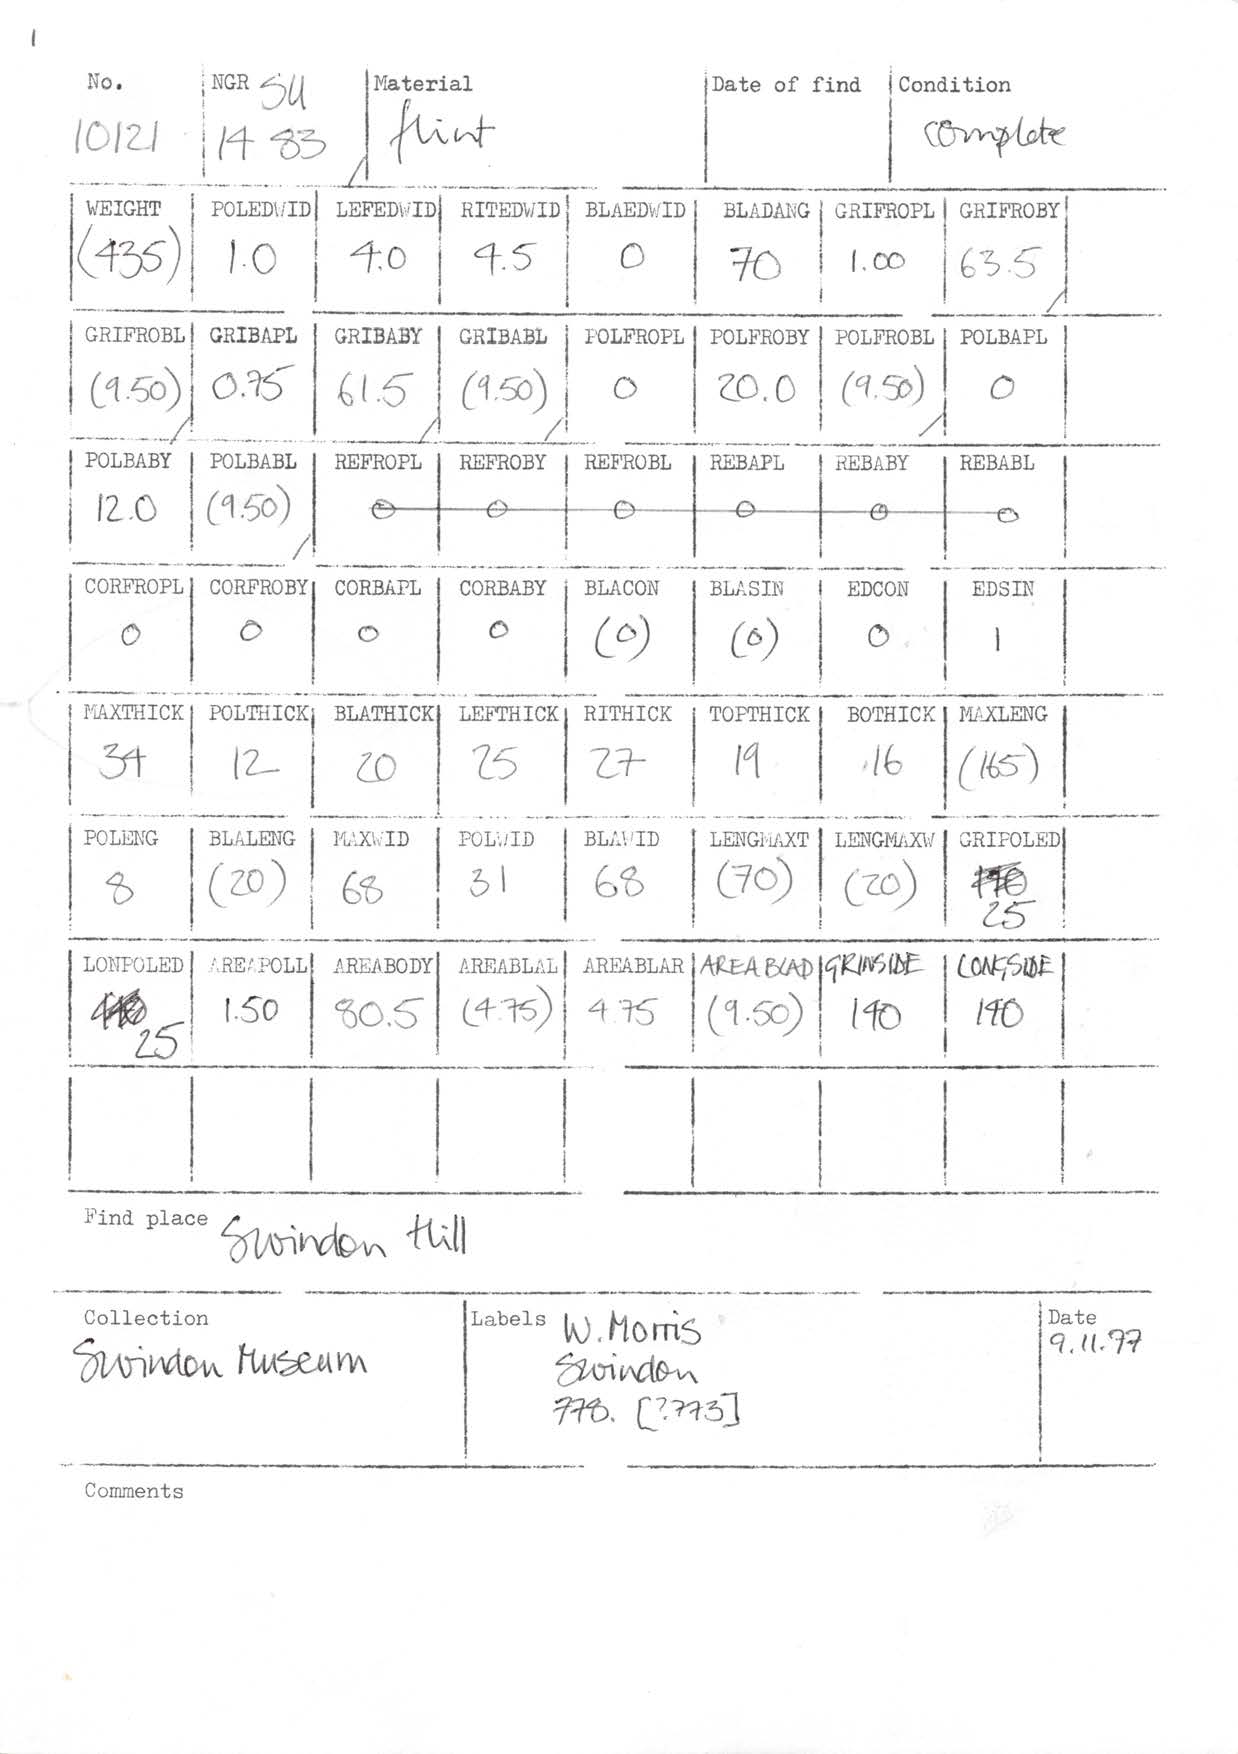 1
No. NGR SU Material Date of find Condition
10121 14 83 flint complete
WEIGHT POLEDWID LEFEDWID RITEDWID BLAEDWID BLADANG GRIFROPL GRIFROBY
(435) 1.0 4.0 4.5 0 70 1.00 63.5
GRIFROBL GRIBAPL GRIBABY GRIBABL POLFROPL POLFROBY POLFROBL POLBAPL
(9.50) 0.75 61.5 (9.50) 0 20.0 (9.50) 0
POLBABY POLBABL REFROPL REFROBY REFROBL REBAPL REBABY REBABL
12.0 (9.50) 0 0 0 0 0 0
CORFROPL CORFROBY CORBAPL CORBABY BLACON BLASIN EDCON EDSIN
0 0 0 0 (0) (0) 0 1
MAXTHICK POLTHICK BLATHICK LEFTHICK RITHICK TOPTHICK BOTHICK MAXLENG
34 12 20 25 27 19 16 (165)
POLENG BLALENG MAXWID POLWID BLAWID LENGMAXT LENGMAXW GRIPOLED
8 (20) 68 31 68 (70) (20)
25
LONPOLED AREAPOLL AREABODY AREABLAL AREABLAR AREABLAD GRINSIDE LONGSIDE
1.50 80.5 (4.75) 4.75 (9.50) 140 140
25
Find place Swindon Hill
Collection Labels W. Morris Date
Swindon Museum Swindon 9.11.77
778. [?773]
Comments